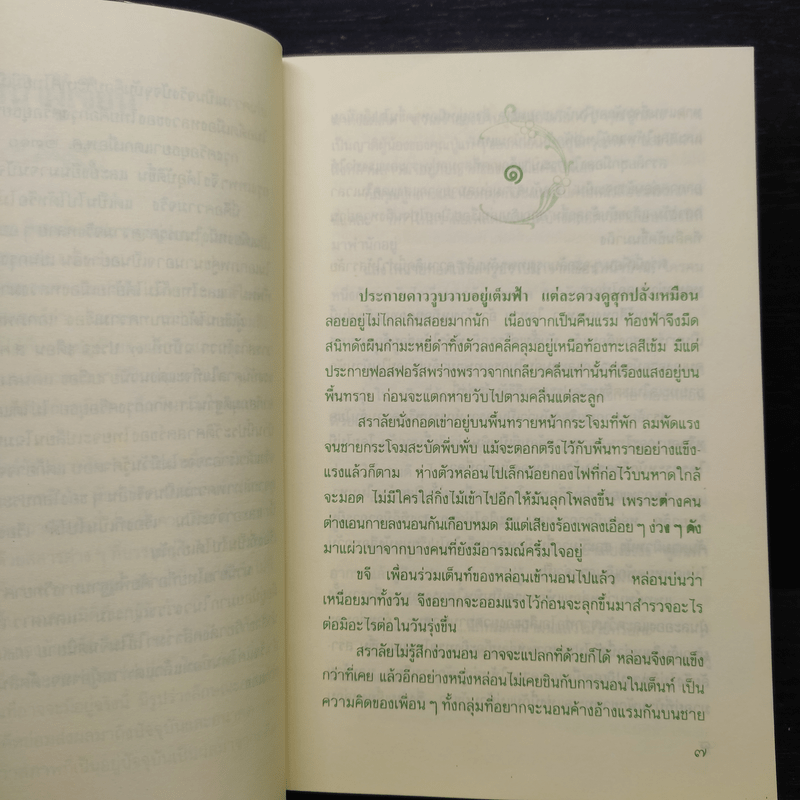 ๑
ประกายดาววูบวาบอยู่เต็มฟ้า แต่ละดวงดูสุกปลั่งเหมือน
ลอยอยู่ไม่ไกลเกินสอยมากนัก เนื่องจากเป็นคืนแรม ท้องฟ้าจึงมืด
สนิทดังผืนกำมะหยี่ดำทิ้งตัวลงคลี่คลุมอยู่เหนือท้องทะเลสีเข้ม มีแต่
ประกายฟอสฟอรัสพร่างพราวจากเกลียวคลื่นเท่านั้นที่เรืองแสงอยู่บน
พื้นทราย ก่อนจะแตกหายวับไปตามคลื่นแต่ละลูก
สราลัยนั่งกอดเข่าอยู่บนพื้นทรายหน้ากระโจมที่พัก ลมพัดแรง
จนชายกระโจมสะบัดพึ่บพั่บ แม้จะตอกตรึงไว้กับพื้นทรายอย่างแข็ง-
แรงแล้วก็ตาม ห่างตัวหล่อนไปเล็กน้อยกองไฟที่ก่อไว้บนหาดใกล้
จะมอด ไม่มีใครใส่กิ่งไม้เข้าไปอีกให้มันลุกโพลงขึ้น เพราะต่างคน
ต่างเอนกายลงนอนกันเกือบหมด มีแต่เสียงร้องเพลงเอื่อย ๆ ง่วง ๆ ดัง
มาแผ่วเบาจากบางคนที่ยังมีอารมณ์ครึ้มใจอยู่
ขจี เพื่อนร่วมเต็นท์ของหล่อนเข้านอนไปแล้ว หล่อนบ่นว่า
เหนื่อยมาทั้งวัน จึงอยากจะออมแรงไว้ก่อนจะลุกขึ้นมาสำรวจอะไร
ต่อมิอะไรต่อในวันรุ่งขึ้น
สราลัยไม่รู้สึกง่วงนอน อาจจะแปลกที่ด้วยก็ได้ หล่อนจึงตาแข็ง
กว่าที่เคย แล้วอีกอย่างหนึ่งหล่อนไม่เคยชินกับการนอนในเต็นท์ เป็น
ความคิดของเพื่อน ๆ ทั้งกลุ่มที่อยากจะนอนค้างอ้างแรมกันบนชาย
๗